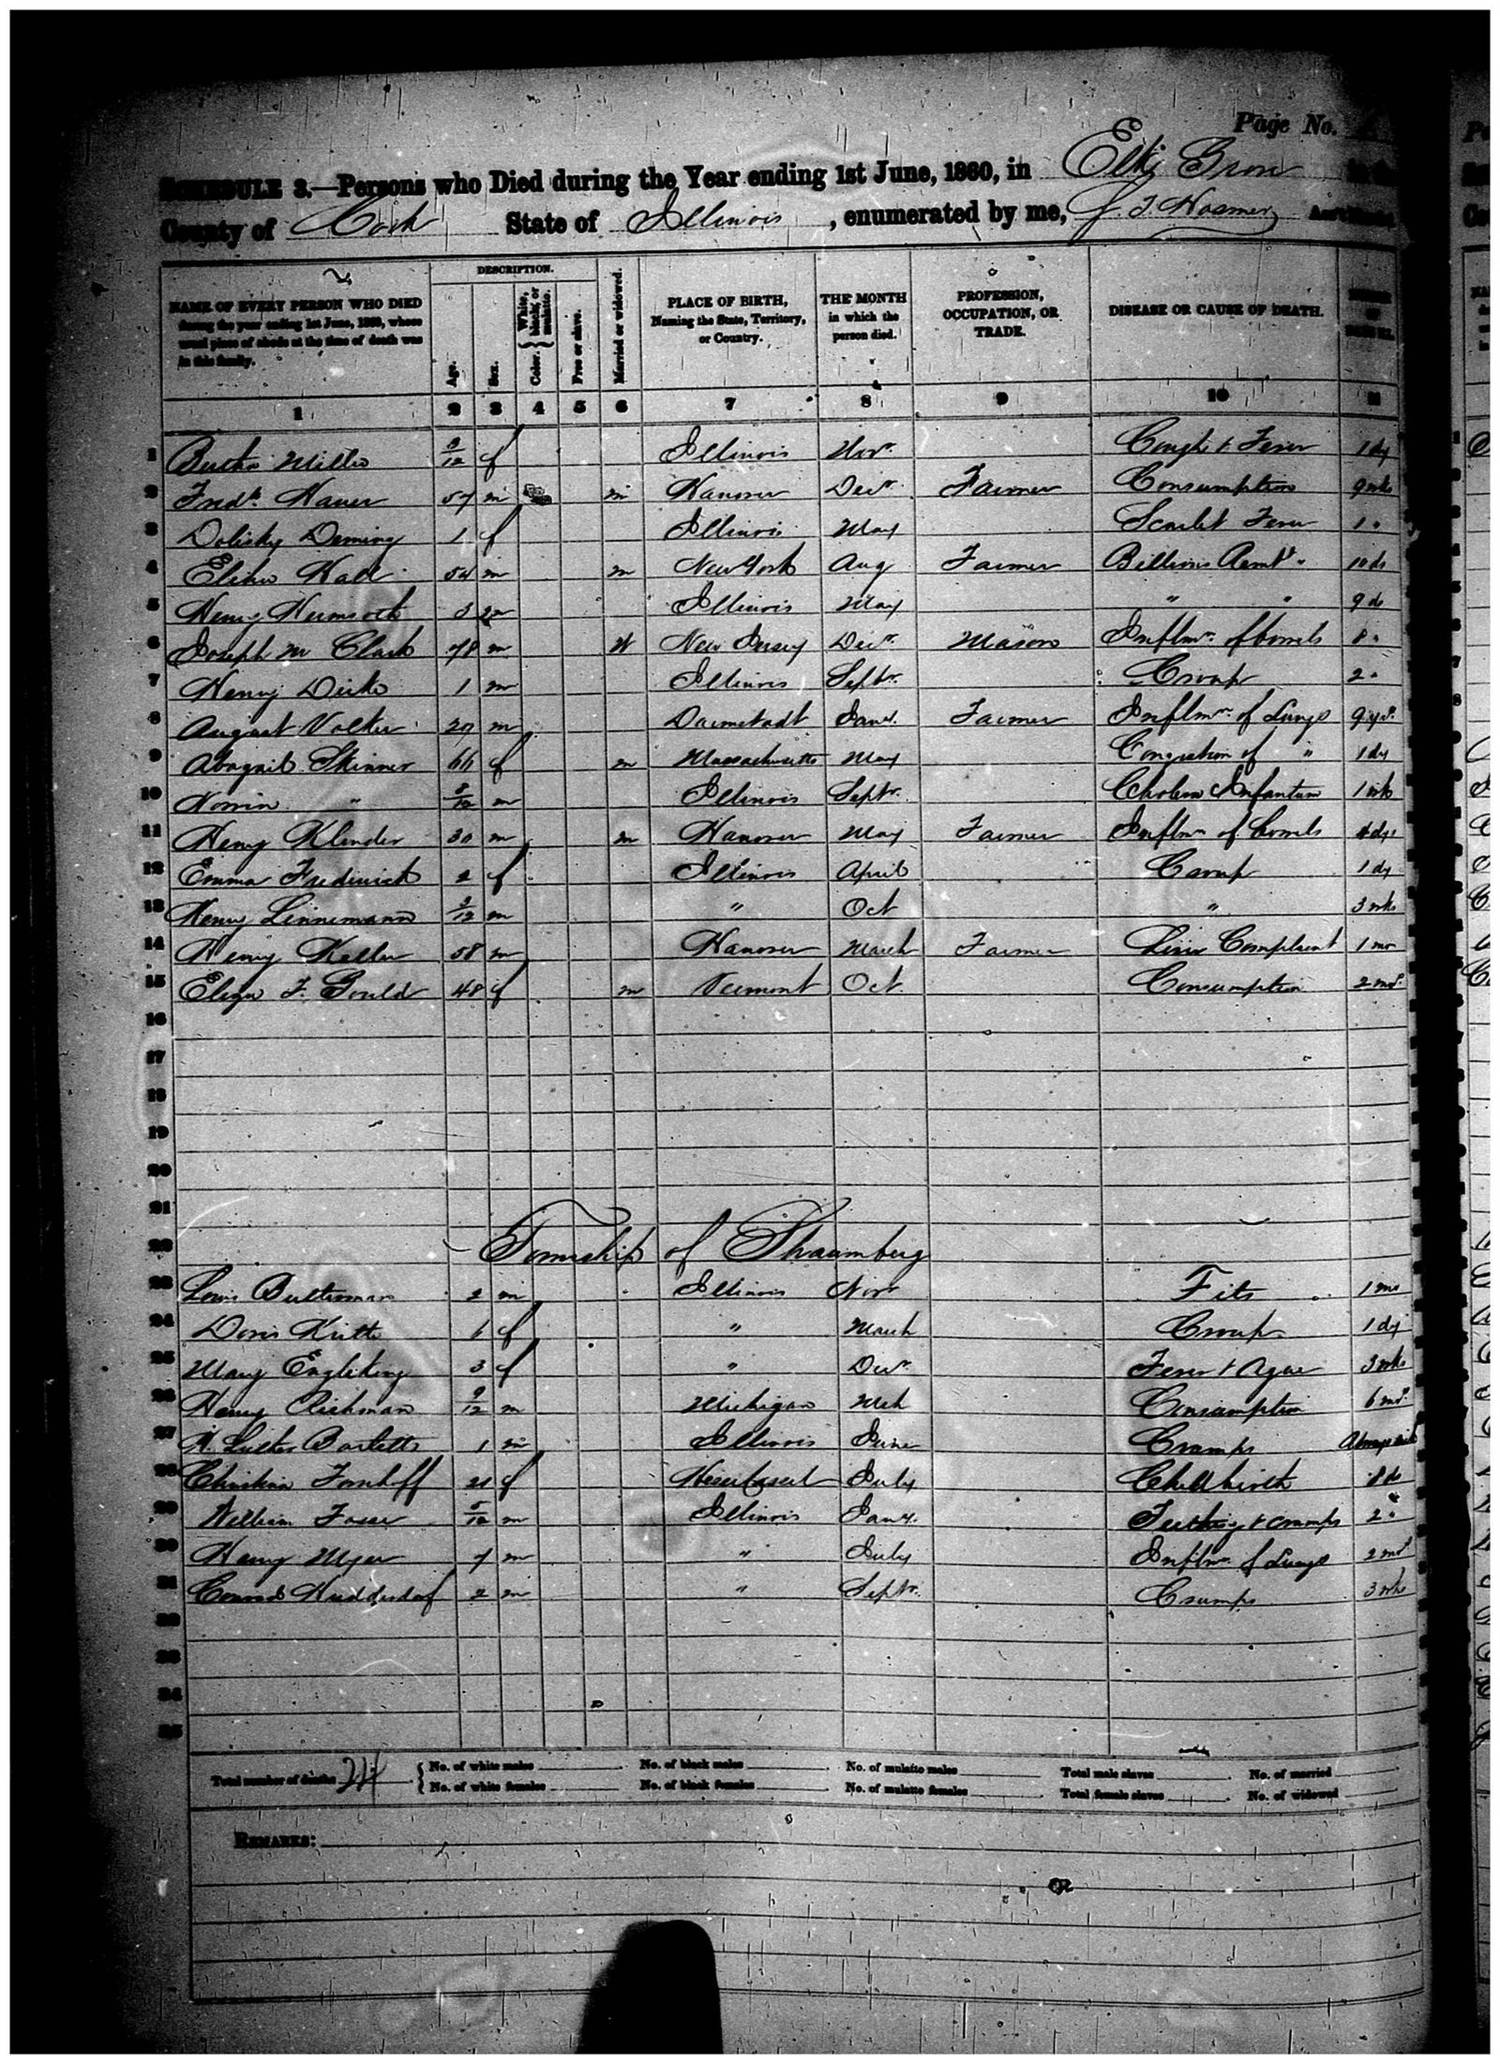 Page No.
SCHEDULE 3.—Persons who Died during the Year ending 1st June, 1860, in Elk Grove in the
County of Cook State of Illinois, enumerated by me, J. T. Hosmer Ass't Marshal.
DESCRIPTION.
NAME OF EVERY PERSON WHO DIED during the year ending 1st June, 1860, whose usual place of abode at the time of death was in this family.
Age. Sex. Color. White, black, or mulatto. Free or slave. Married or widowed.
PLACE OF BIRTH, Naming the State, Territory, or Country.
THE MONTH in which the person died.
PROFESSION, OCCUPATION, OR TRADE.
DISEASE OR CAUSE OF DEATH.
NUMBER OF DAYS ILL.
1 2 3 4 5 6 7 8 9 10 11
1 f Illinois Novr. Cough & Fever 1 dy
2 Fredk. Hauer 57 m m Hanover Decr. Farmer Consumption 9 wks
3 Deming 1 f Illinois May Scarlet Fever 1 "
4 Elihu Hall 54 m m New York Aug Farmer Billious Remt. " 10 ds
5 Henry 3 m Illinois May " " 9 ds
6 Joseph M Clark 78 m W New Jersey Decr. Mason Inflmn. of bowels 8 "
7 Henry 1 m Illinois Septr. Croup 2 "
8 August Volker m Darmstadt Jany. Farmer Inflmn. of Lungs
9 Abagail Skinner 66 f m Massachusetts May Congestion of " 1 dy
10 " m Illinois Septr. Cholera Infantum 1 wk
11 Henry Klinder 30 m m Hanover May Farmer Inflmn of bowels 4 dys
12 Emma Frederick 2 f Illinois April Croup 1 dy
13 Henry Linnemann m " Oct " 3 wks
14 Henry Keller 58 m Hanover March Farmer Liver Complaint 1 mo
15 Eliza F. Gould 48 f m Vermont Oct. Consumption 2 mos.
16
17
18
19
20
21
22 Township of Shaumberg
23 Louis 2 m Illinois Novr Fits 1 mo
24 Doris 6 f " March Croup 1 dy
25 Mary Engleking 3 f " Decr. Fever & Ague 3 wks
26 Henry Richman 9/12 m Michigan Mch Consumption 6 mos.
27 H. Luther Bartlett 1 m Illinois June Cramps Always sick
28 Christina 21 f Hesse Cassel July Childbirth 8 ds
29 William 5/12 m Illinois Jany. Teething & cramps 2 "
30 Henry Myer 7 m " July Inflmn. of Lungs 2 mos
31 Conrad 2 m " Septr. Cramps 3 wks
32
33
34
35
Total number of deaths 24 No. of white males No. of black males No. of mulatto males Total male slaves No. of married
No. of white females No. of black females No. of mulatto females Total female slaves No. of widowed
REMARKS: